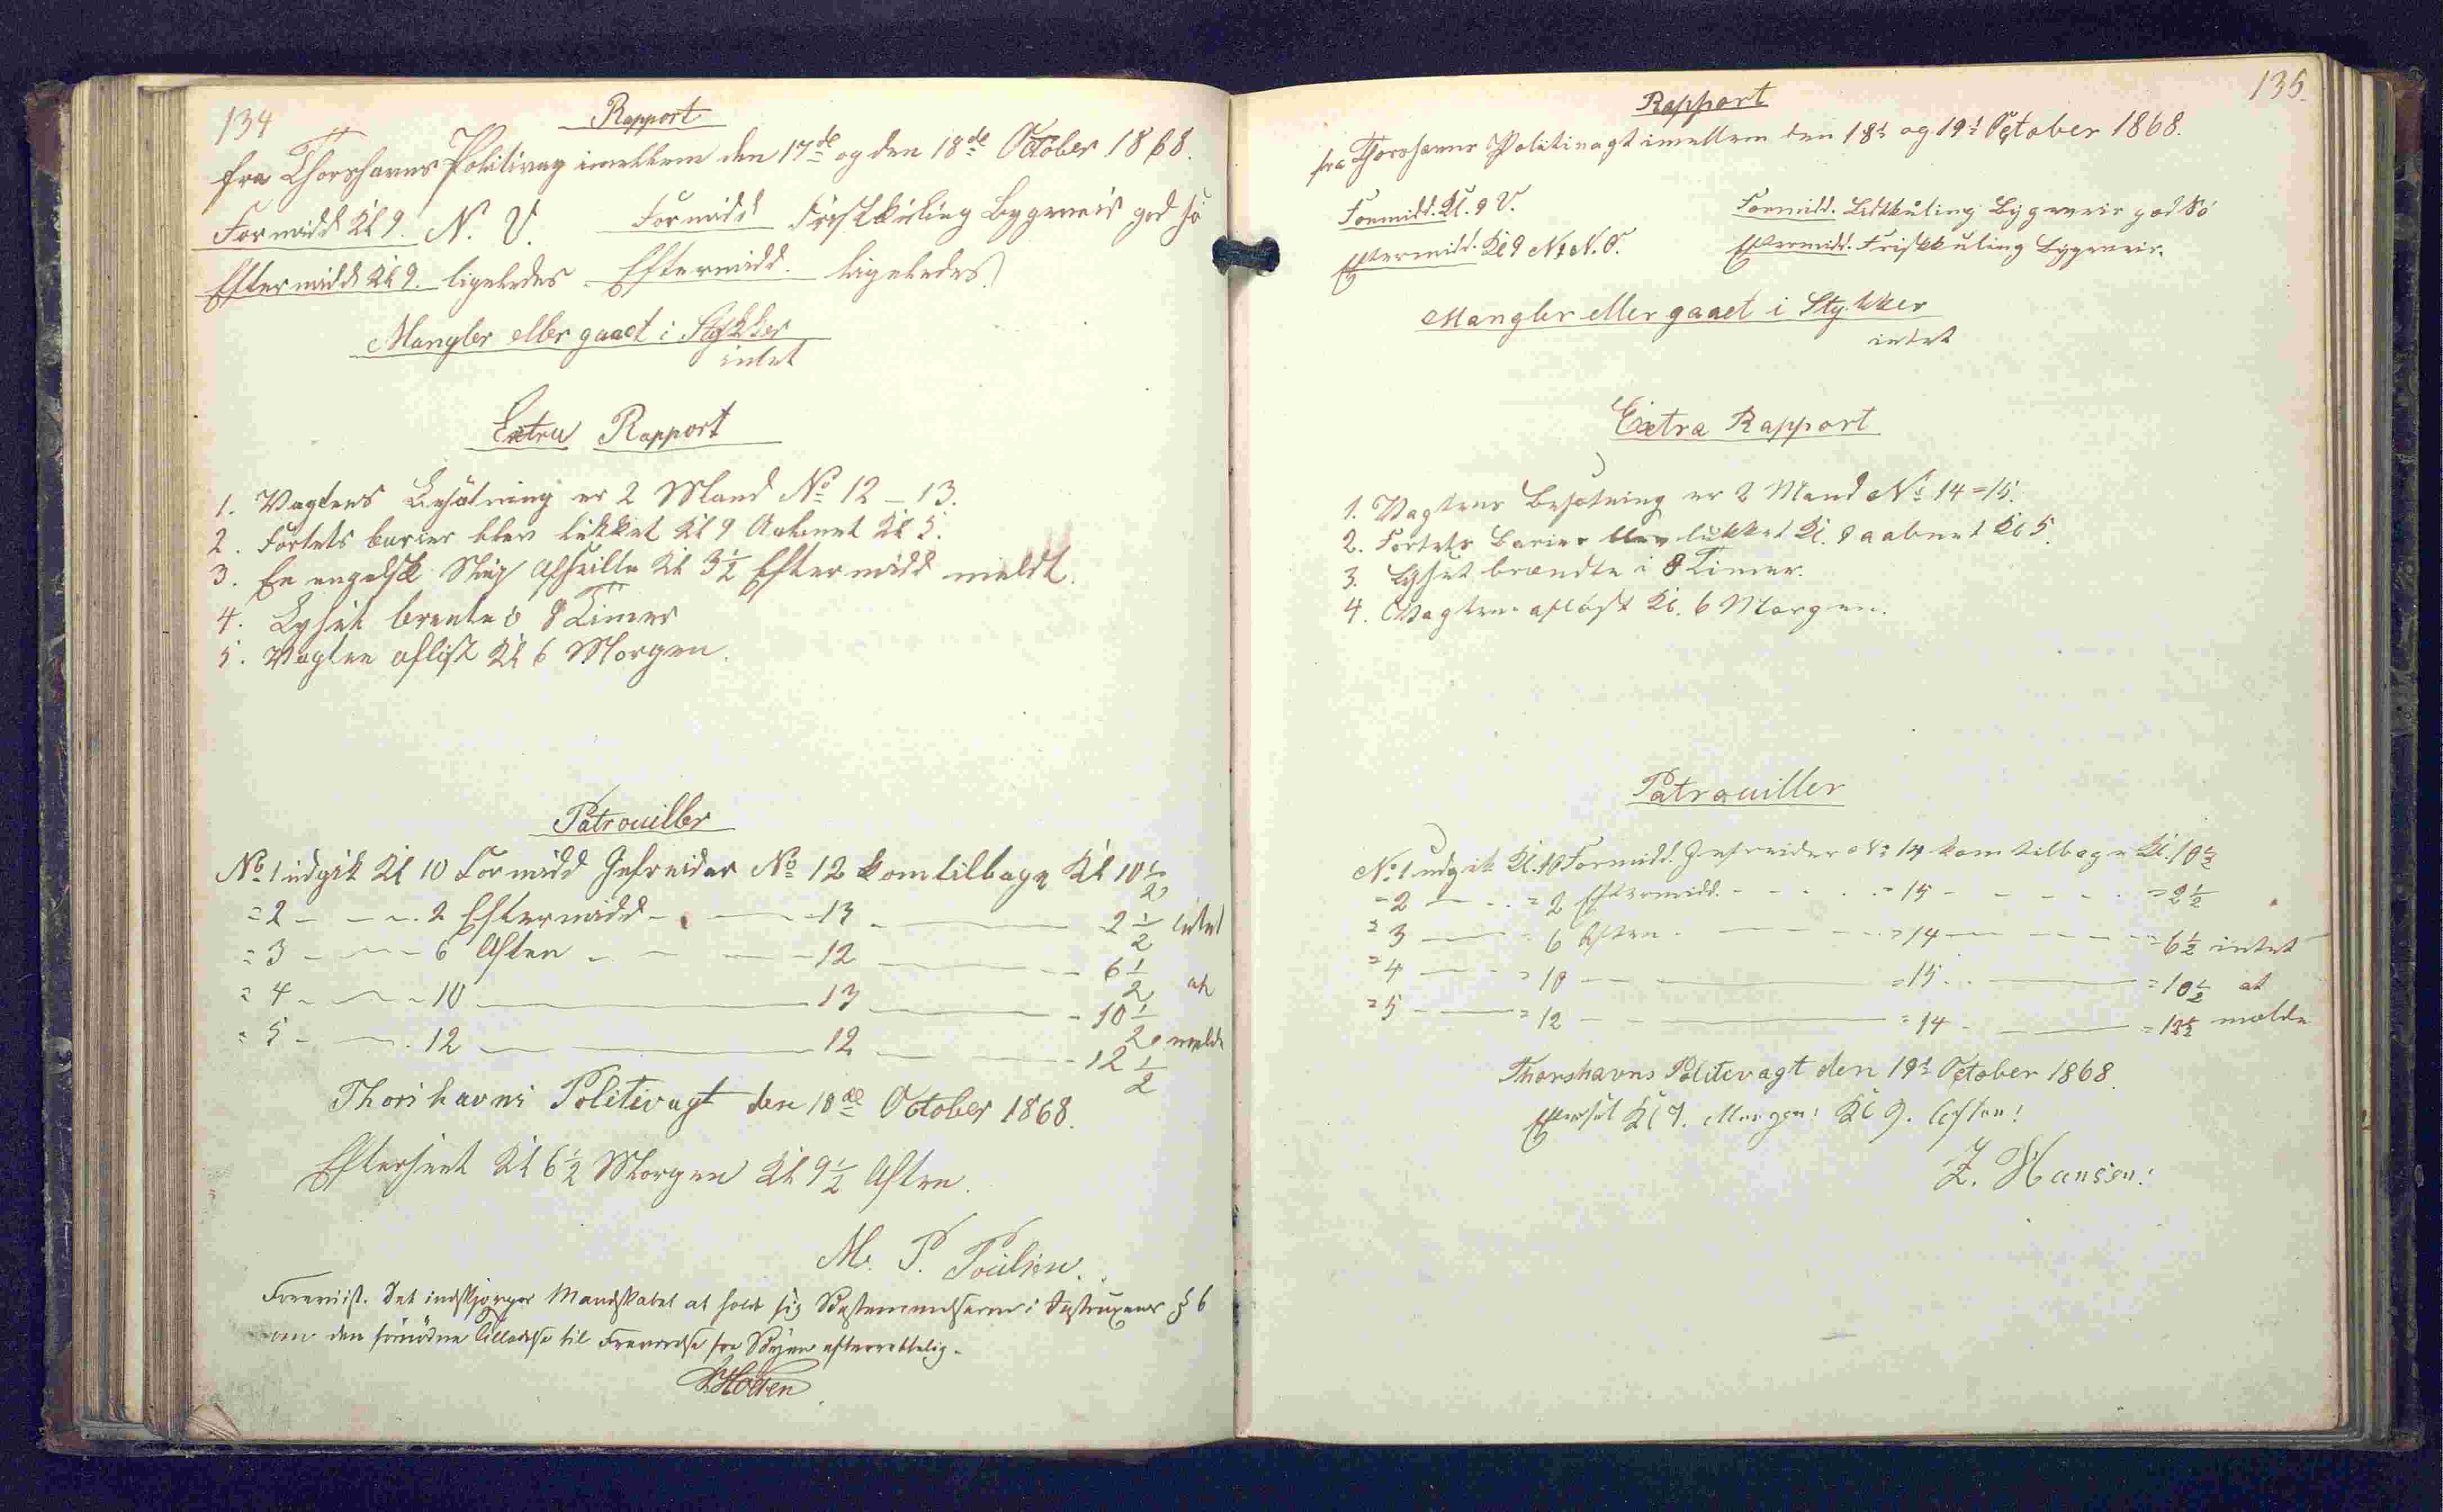 134
Rapport
fra Thorshavns Politivagt imellem den 17de og den 18de October 1868.
Formidd Kl 9. N. V. Formidd Friskkuling Bygeveir god Sö
Eftermidd Kl 9. ligeledes Eftermidd. ligeledes
Mangler eller gaaet i Stykker
intet
Extra Rapport
1. Vagtens Besætning er 2 Mand No 12 - 13.
2. Fortets barier blev lukket Kl 9 Aabnet Kl 5.
3. En engelsk Skip afseilte Kl 3½ Eftermidd meldt.
4. Lyset brente i 8 Timer
5. Vagten aflöst Kl 6 Morgen.
Patrouiller
No 1 udgik Kl 10 Formidd Gefreider No 12 kom tilbage Kl 10½
= 2 - - - 2 Eftermidd - - 13 - 2½ intet
= 3 - - - 6 Aften - - - 12 - - 6½
= 4 - - - 10 - 13 - - 10½ at
= 5 - - 12 - - 12 - - 12½ melde
Thorshavns Politivagt den 18de October 1868.
Efterseet Kl 6½ Morgen Kl 9½ Aften.
M. P. Poulsen.
Foreviist. Det indskjærpes Mandskabet at holde sig Bestemmelserne i Instruxens § 6
om den fornödne Tilladelse til Fraværelse fra Byen efterrettelig.
HHolten
135.
Rapport
fra Thorshavns Politivagt imellem den 18d og 19d October 1868.
Formidd. Kl. 9 V. Formidd. Lidtkuling Bygeveir god Sö
Eftermidd. Kl 9 N t N. O. Eftermidd. Friskkuling Bygeveir.
Mangler eller gaaet i Stykker
intet
Extra Rapport
1. Vagtens Besætning er 2 Mand No 14 = 15.
2. Fortets Barier blev lukket Kl. 9 aabnet Kl 5.
3. Lyset brændte i 8 Timer.
4. Vagten aflöst Kl. 6 Morgen.
Patrouiller
No 1 udgik Kl. 10 Formidd. Gefreider No 14 kom tilbage Kl. 10½
= 2 - - = 2 Eftermidd. - - - = 15 - - - - = 2½
= 3 - = 6 Aften - - - = 14 - - - = 6½ intet
= 4 - - = 10 - - = 15 - - = 10½ at
= 5 - - = 12 - - = 14 - - = 12½ melde
Thorshavns Politivagt den 19d October 1868.
Efterset Kl 7. Morgen! Kl 9. Aften!
Z. Hansen!